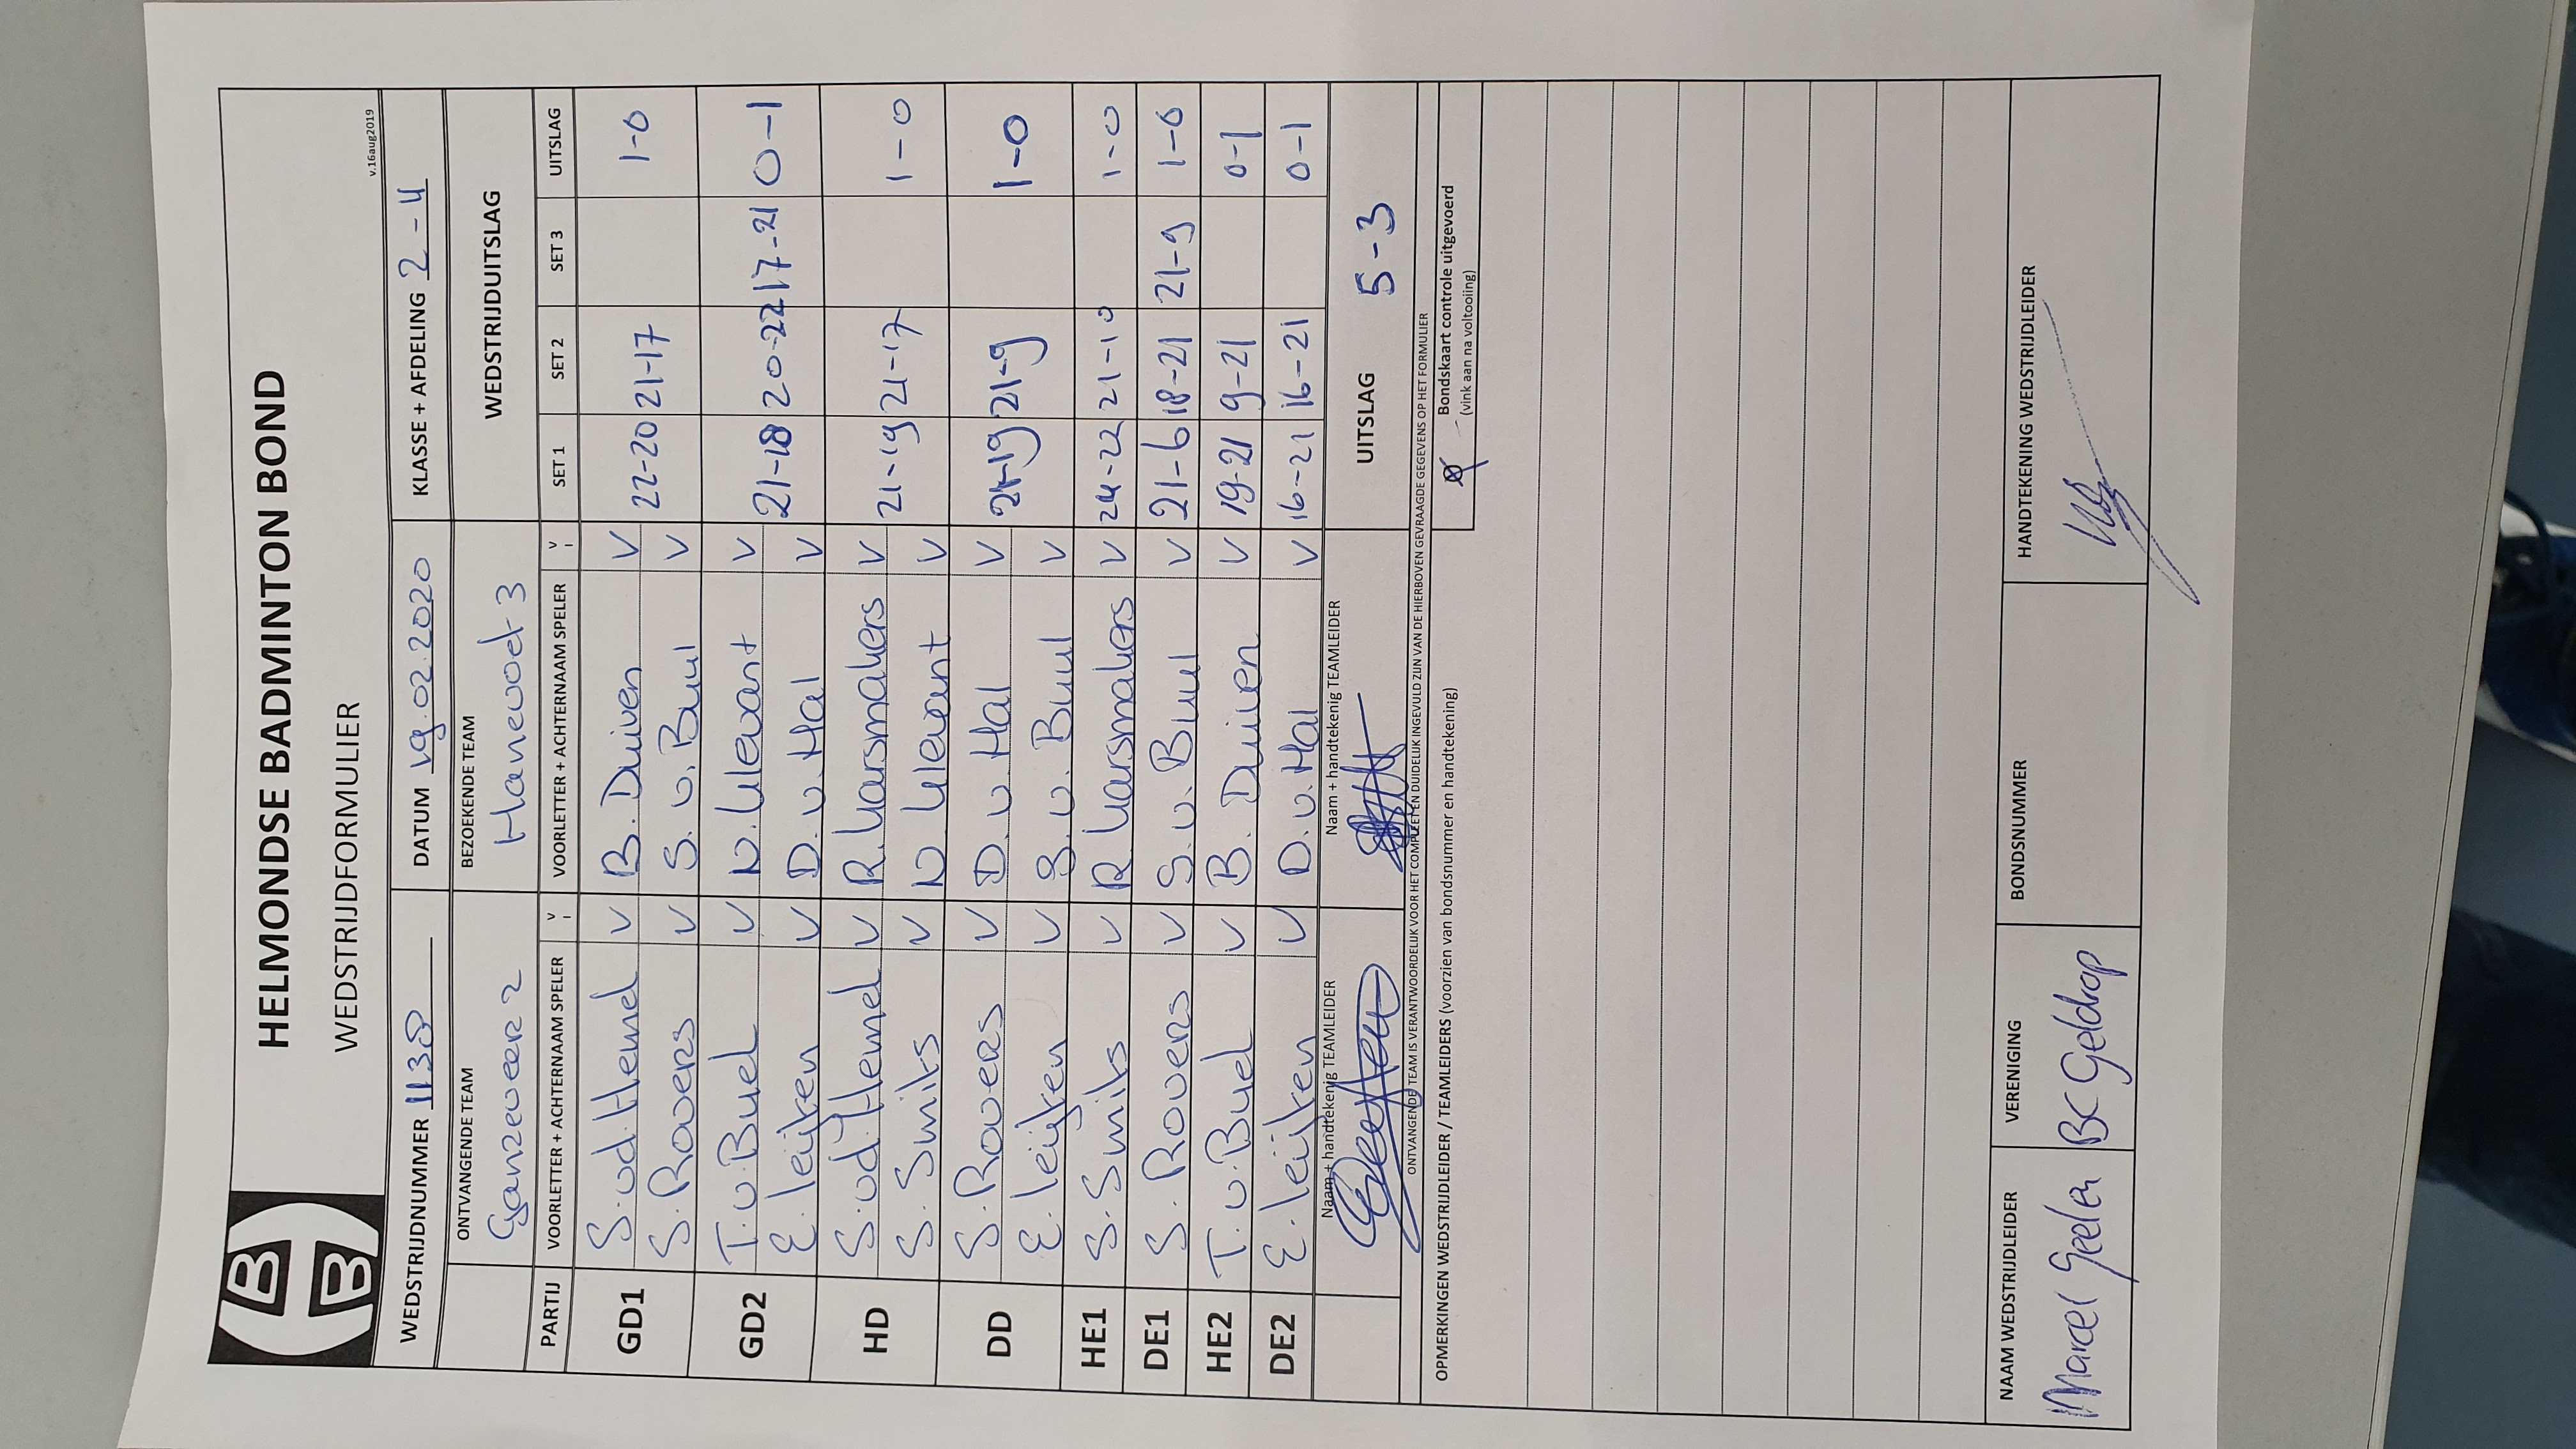 HELMONDSE BADMINTON BOND
WEDSTRIJDFORMULIER
v.16aug2019
WEDSTRIJDNUMMER 1138 DATUM 19.02.2020 KLASSE + AFDELING 2-4
ONTVANGENDE TEAM BEZOEKENDE TEAM WEDSTRIJDUITSLAG
Ganzeveer 2 Hanevoet 3
PARTIJ VOORLETTER + ACHTERNAAM SPELER V VOORLETTER + ACHTERNAAM SPELER V SET 1 SET 2 SET 3 UITSLAG
GD1 S. vd Hemel V B. Duiven V 22-20 21-17 1-0
S. Rovers V S. v. Buul V
GD2 T. v. Buel V N. Klevant V 21-18 20-22 17-21 0-1
E. leijken V D. v. Hal V
HD S. vd Hemel V R. Karsmakers V 21-19 21-17 1-0
S. Smits V N. Klevant V
DD S. Rovers V D. v. Hal V 21-19 21-9 1-0
E. leijken V S. v. Buul V
HE1 S. Smits V R. Karsmakers V 24-22 21-10 1-0
DE1 S. Rovers V S. v. Buul V 21-6 18-21 21-9 1-0
HE2 T. v. Buel V B. Duiven V 19-21 9-21 0-1
DE2 E. leijken V D. v. Hal V 16-21 16-21 0-1
Naam + handtekenig TEAMLEIDER Naam + handtekenig TEAMLEIDER UITSLAG 5-3
ONTVANGENDE TEAM IS VERANTWOORDELIJK VOOR HET COMPLEET EN DUIDELIJK INGEVULD ZIJN VAN DE HIERBOVEN GEVRAAGDE GEGEVENS OP HET FORMULIER
OPMERKINGEN WEDSTRIJDLEIDER / TEAMLEIDERS (voorzien van bondsnummer en handtekening) Bondskaart controle uitgevoerd
(vink aan na voltooiing)
NAAM WEDSTRIJDLEIDER VERENIGING BONDSNUMMER HANDTEKENING WEDSTRIJDLEIDER
Marcel Geelen BC Geldrop